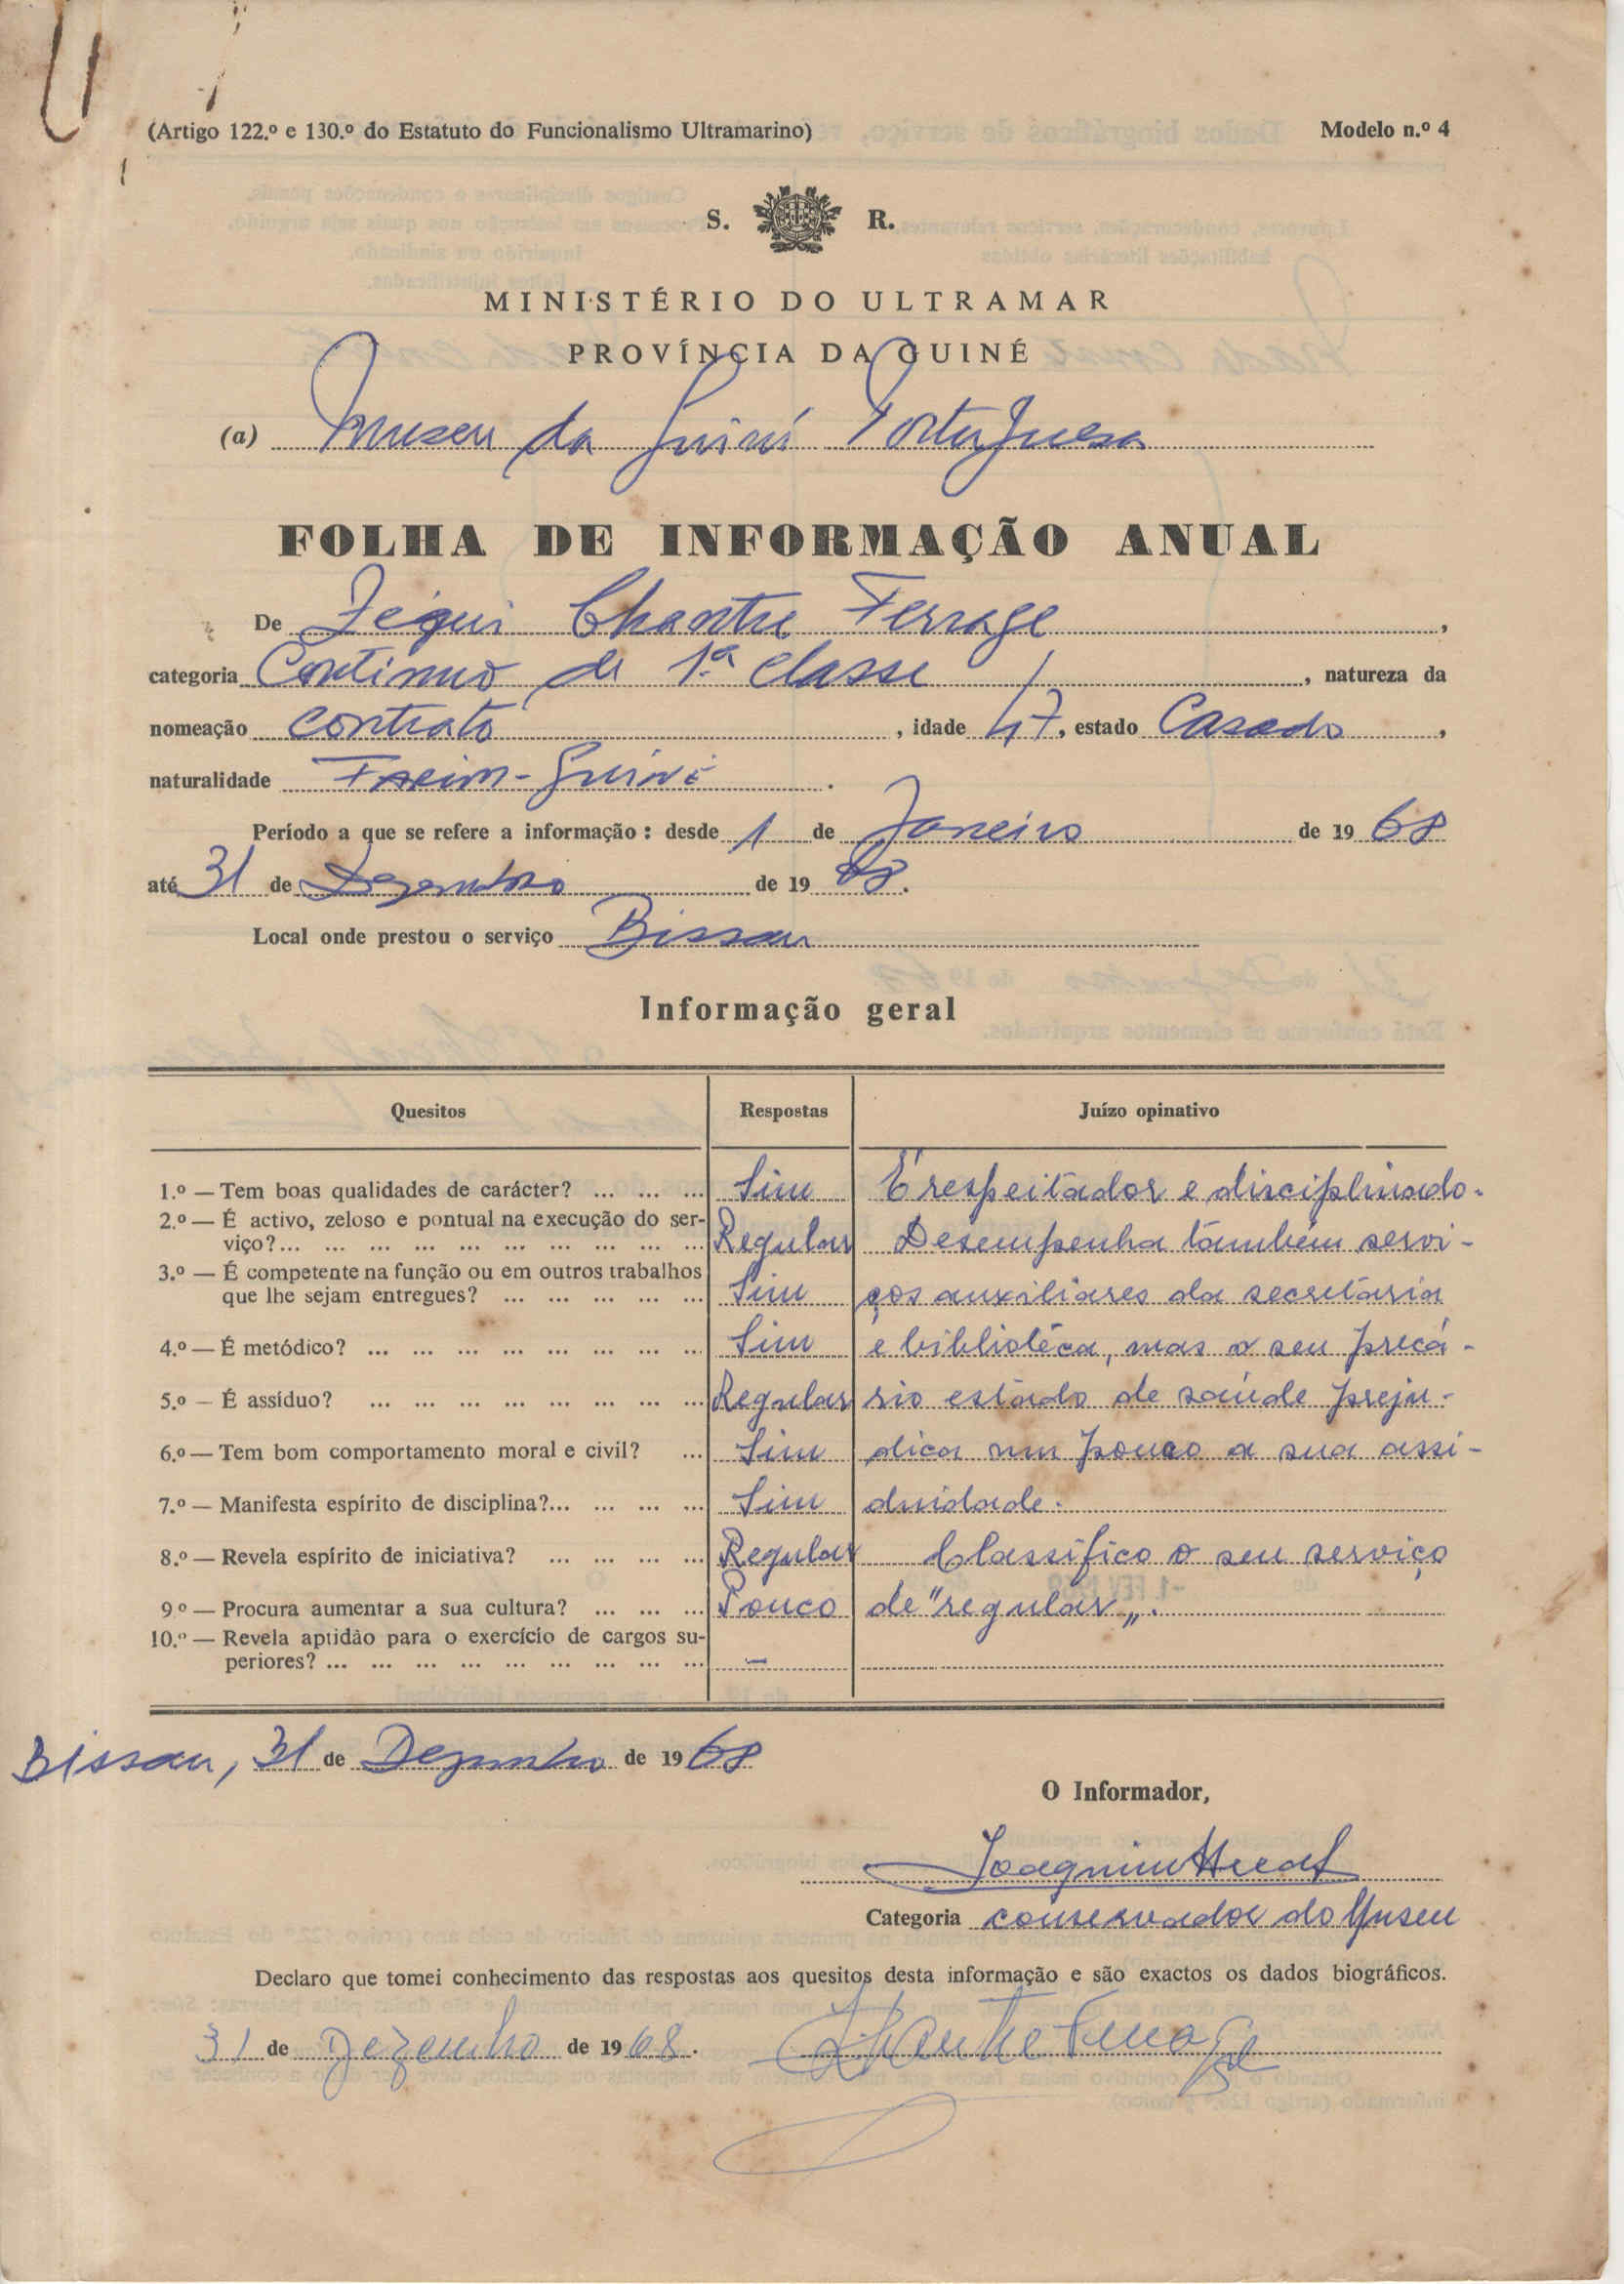 (Artigo 122.º e 130.º do Estatuto do Funcionalismo Ultramarino) Modelo n.º 4
S. R.
MINISTÉRIO DO ULTRAMAR
PROVÍNCIA DA GUINÉ
(a) Museu da Guiné Portuguesa
FOLHA DE INFORMAÇÃO ANUAL
De Zéqui Chantre Ferrage,
categoria Contínuo de 1.ª classe, natureza da
nomeação contrato, idade 47, estado Casado,
naturalidade Farim-Guiné.
Período a que se refere a informação: desde 1 de Janeiro de 1968
até 31 de Dezembro de 1968.
Local onde prestou o serviço Bissau
Informação geral
Quesitos Respostas Juízo opinativo
1.º — Tem boas qualidades de carácter? ... ... ... Sim É respeitador e disciplinado.
2.º — É activo, zeloso e pontual na execução do ser-
viço?... ... ... ... ... ... ... ... ... ... Regular Desempenha também servi-
3.º — É competente na função ou em outros trabalhos
que lhe sejam entregues? ... ... ... ... ... Sim ços auxiliares da secretaria
4.º — É metódico? ... ... ... ... ... ... ... ... Sim e bibliotéca, mas o seu precá-
5.º — É assíduo? ... ... ... ... ... ... ... ... Regular rio estado de saúde preju-
6.º — Tem bom comportamento moral e civil? ... Sim dica um pouco a sua assi-
7.º — Manifesta espírito de disciplina?... ... ... ... Sim duidade.
8.º — Revela espírito de iniciativa? ... ... ... ... Regular Classifico o seu serviço
9º — Procura aumentar a sua cultura? ... ... ... Pouco de "regular".
10.º — Revela aptidão para o exercício de cargos su-
periores? ... ... ... ... ... ... ... ... ... -
Bissau, 31 de Dezembro de 1968
O Informador,
Joaquim
Categoria conservador do Museu
Declaro que tomei conhecimento das respostas aos quesitos desta informação e são exactos os dados biográficos.
31 de Dezembro de 1968. Chantre Ferrage